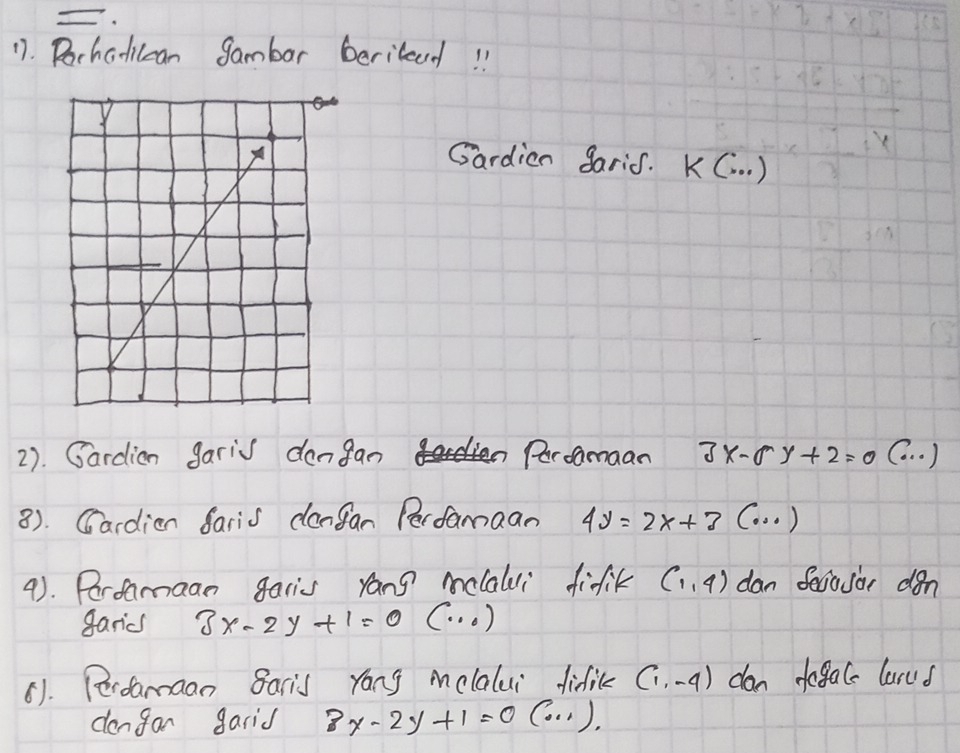 II.
1). Perhatikan gambar berikut !!
Gardien garis. K (...)
2). Gardien garis dengan gardien Persamaan 3x-5y+2=0 (...)
3). Gardien garis dengan Persamaan 4y=2x+3 (...)
4). Persamaan garis yang melalui titik (1,4) dan sejajar dgn
garis 3x-2y+1=0 (...)
5). Persamaan garis yang melalui titik (1,-4) dan tegak lurus
dengan garis 3x-2y+1=0 (...).